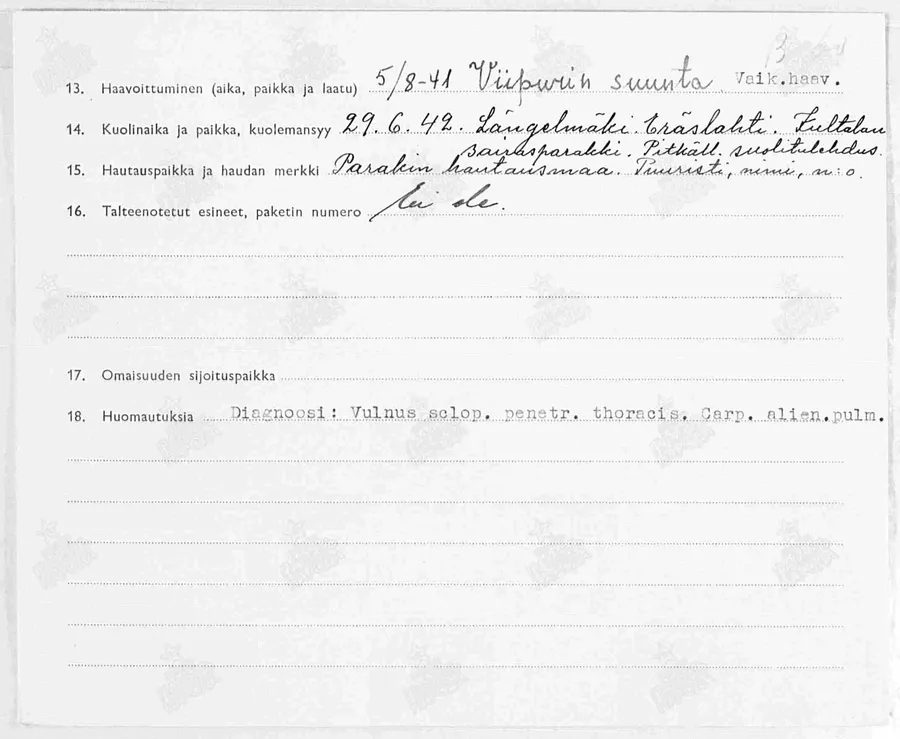 13. Haavoittuminen (aika, paikka ja laatu) 5/8-41 Viipurin suunta Vaik.haav.
14. Kuolinaika ja paikka, kuolemansyy 29.6.42. Längelmäki. Eräslahti.
sairasparakki. Pitkäll. suolitulehdus.
15. Hautauspaikka ja haudan merkki Parakin hautausmaa. Puuristi, nimi, n:o.
16. Talteenotetut esineet, paketin numero Ei ole.
17. Omaisuuden sijoituspaikka
18. Huomautuksia Diagnoosi: Vulnus sclop. penetr. thoracis. Carp. alien.pulm.